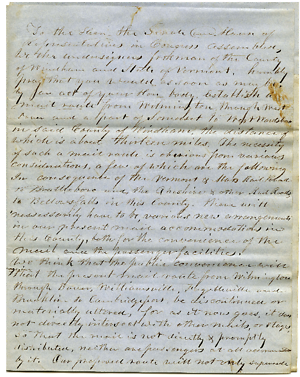 To the Hon. the Senate and House of
representatives in Congress assembled,
We the undersigned of the County
of Windham and State of Vermont, humbly
pray that you would as soon as may be,
by an act of your Hon. body, establish a
mail route from Wilmington through West
Dover and a part of Somerset to West Wardsboro
in said County of Windham, the distance of
which is about thirteen miles. The necessity
of such a mail route is obvious from various
considerations, a few of which are the following
In consequence of the Vermont & Mass. Rail Road
to Brattleboro and the Cheshire & other Rail Roads
to Bellows falls in this County. there will
necessarily have to be various new arrangements
in our present mail accommodations in
this County, both for the convenience of the
mail and the public
We think that the public convenience will
that the present mail route from Wilmington
through Dover, Williamsville, Fayetteville and
Brookline to Cambridgeport be discontinued or
materially altered, for as it now goes, it does
not directly intersect with other mails, or stages
so that the mail is not directly & promptly
distributed, neither are passengers at all accommodated
by it. Our proposed route will not only